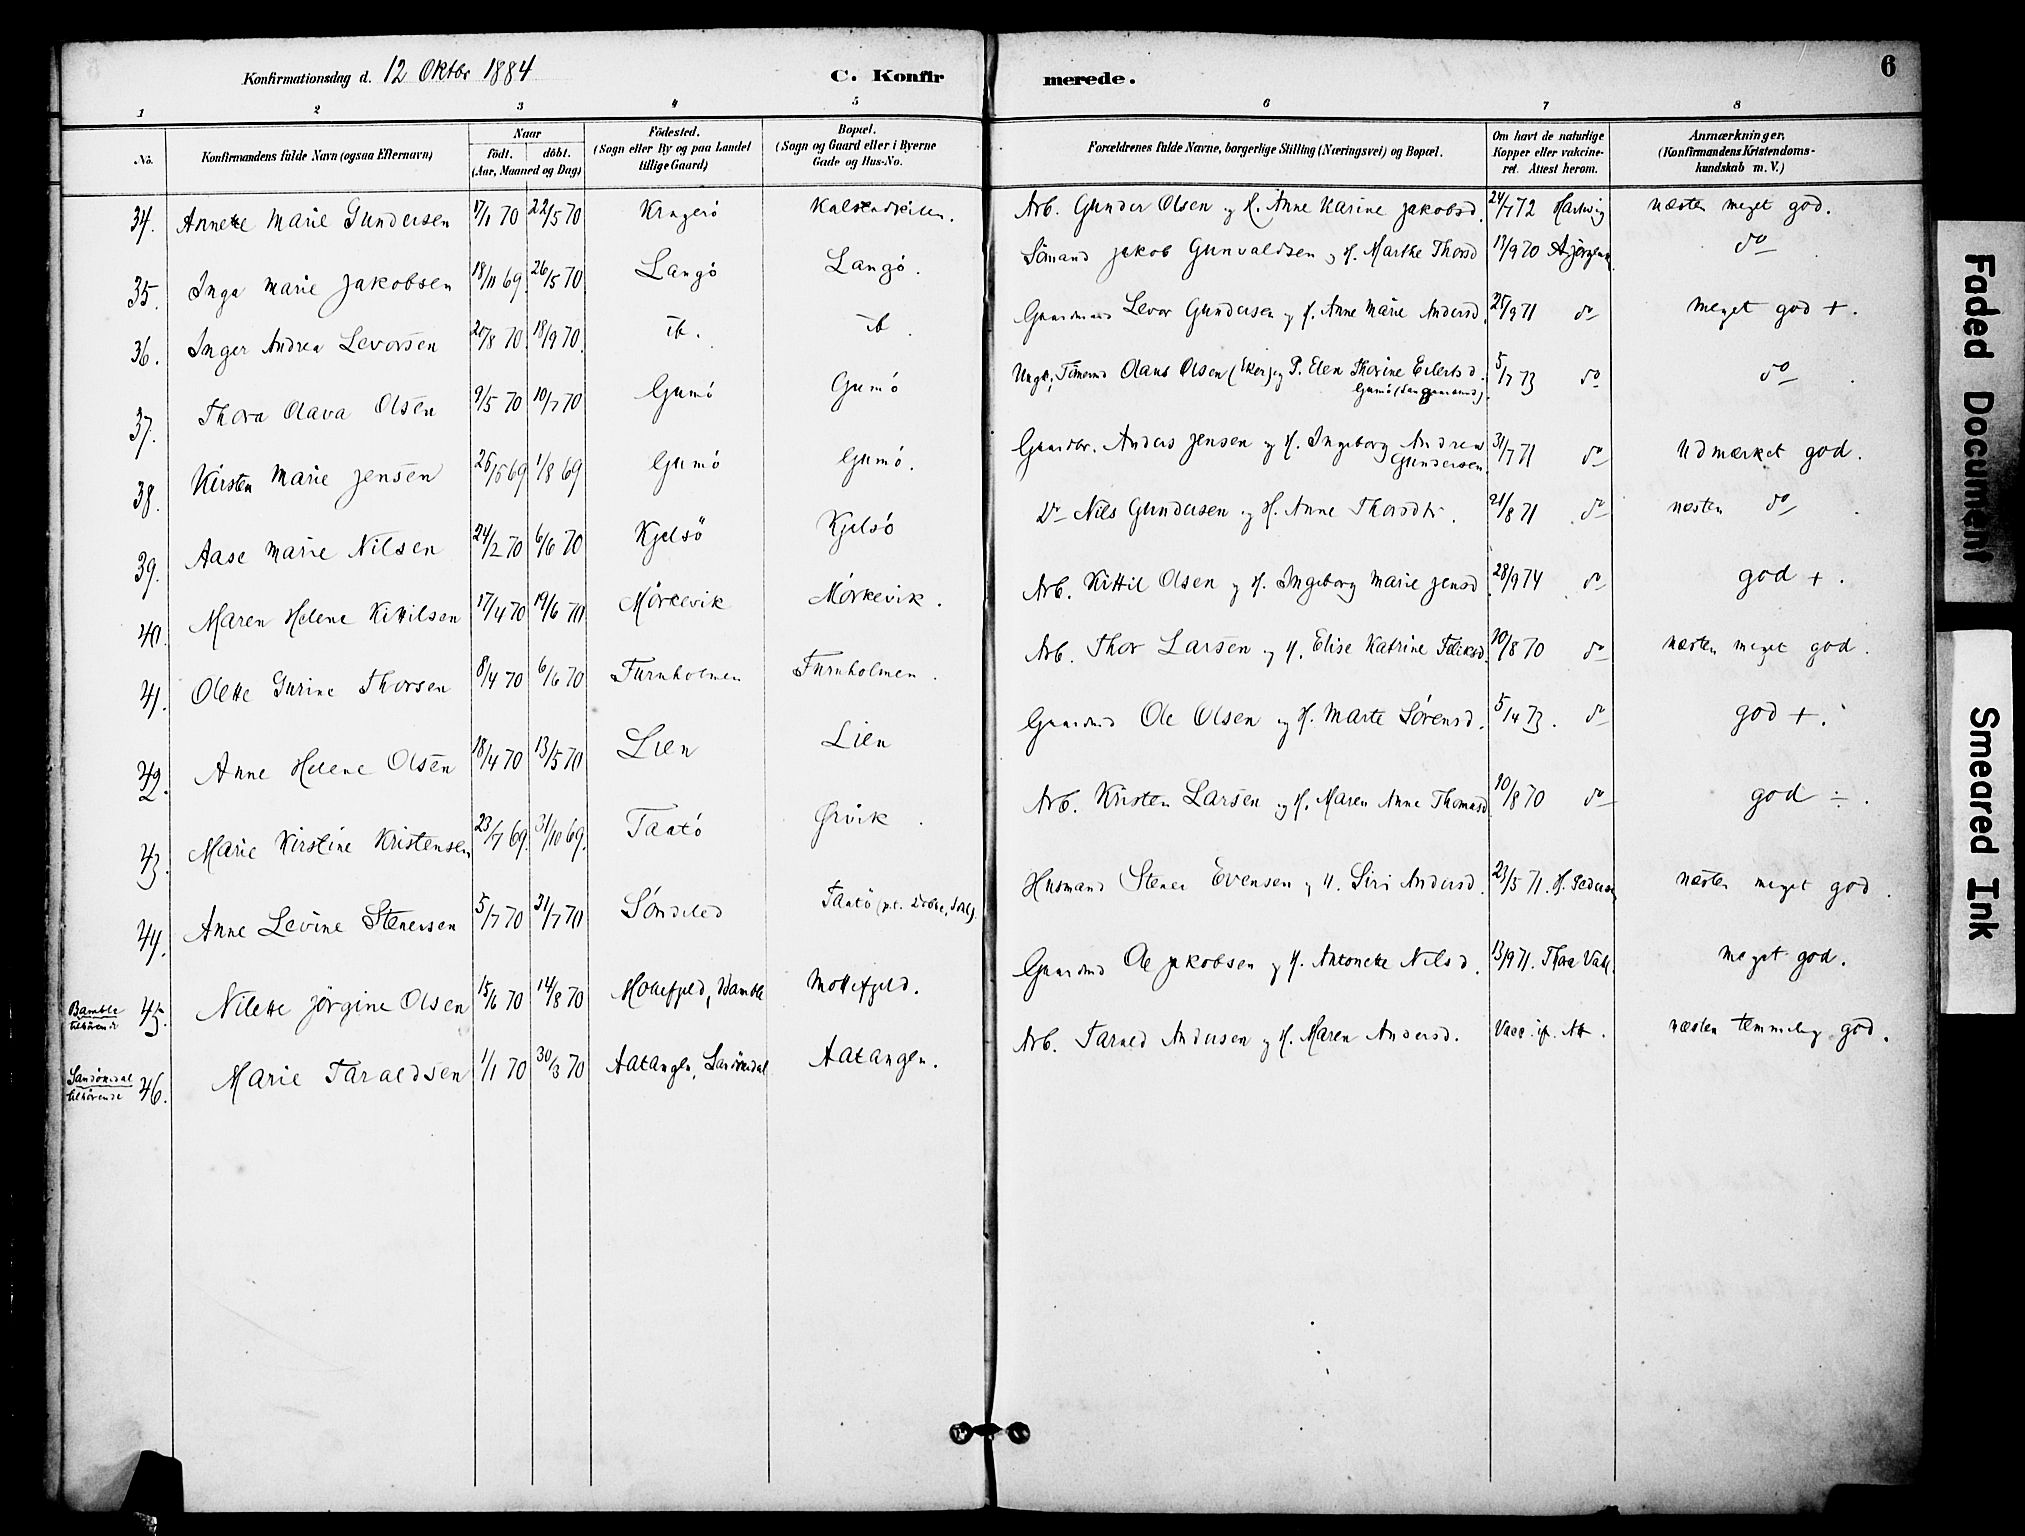 Konfirmationsdag d. 12 Oktbr 1884
C. Konfirmerede.
6
1 2 3 4 5 6 7 8
No.
Konfirmandens fulde Navn (ogsaa Efternavn)
Naar
født. døbt.
(Aar, Maaned og Dag)
Födested.
(Sogn eller By og paa Landet
tillige Gaard)
Bopæl.
(Sogn og Gaard eller i Byerne
Gade og Hus-No.
Forældrenes fulde Navne, borgerlige Stilling (Næringsvei) og Bopæl.
Om havt de naturlige
Kopper eller vakcine-
ret. Attest herom.
Anmærkninger,
(Konfirmandens Kristendoms-
kundskab m. V.)
34. Annette Marie Gundersen 17/1 70 22/5 70 Kragerö Arb. Gunder Olsen og H. Anne Karine Jakobsd. 24/7 72 Hartvig næsten meget god.
35. Inga Marie Jakobsen 18/11 69. 26/5 70 Langö Langö. Sömand Jakob Gunvaldsen og H. Marthe Thorsd 13/9 70 do
36. Inger Andrea Levorsen 20/8 70 18/9 70 ib. ib. Gaardmand Levor Gundersen og H. Anne Marie Andersd. 25/9 71 do meget god +.
37. Thora Olava Olsen 9/5 70 10/7 70 Gumö Gumö Ungk. Tömmermd Olaus Olsen (Eker) og P. Elen Thorine Eilertsd. 5/7 73 do do
Gumö
38. Kirsten Marie Jensen 26/5 69 1/8 69 Gumö Gumö. Gaardbr. Anders Jensen og H. Ingeborg Andrea 31/7 71 do Udmærket god.
Gundersen
39. Aase Marie Nilsen 24/2 70 6/6 70 Kjelsö Kjelsö Do Nils Gundersen og H. Anne Thorsdtr. 21/8 71 do næsten do
40. Maren Helene Kittilsen 17/4 70 19/6 70 Mörkevik Mörkevik. Arb. Kittil Olsen og H. Ingeborg Marie Jensd 28/9 74 do god +.
41. Olette Gurine Thorsen 8/4 70 6/6 70 Furuholmen Furuholmen. Arb. Thor Larsen og H. Elise Katrine Feliksd. 10/8 70 do næsten meget god.
42. Anne Helene Olsen 18/4 70 13/5 70 Lien Lien Gaardmd Ole Olsen og H. Marte Sörensd. 5/4 73. do god +.
43. Marie Kirstine Kristensen 23/7 69. 31/10 69. Taatö Ørvik. Arb. Kristen Larsen og H. Maren Anne Thomasd 10/8 70 do god ÷.
44. Anne Levine Stenersen 5/7 70 31/7 70 Söndeled Taatö Husmand Stener Evensen og H. Siri Andersd. 23/5 71. H. Pedersen næsten meget god.
Bamble
tilhörende 45. Nilette Jörgine Olsen 15/6 70 14/8 70 Mollefjeld, Bamble Mollefjeld. Gaardmd Ole Jakobsen og H. Antonette Nilsd. 13/9 71. Thora meget god.
Sandökedal
tilhörende 46. Marie Taraldsen 1/1 70 30/3 70 Aatangen, Sandökedal Aatangen. Arb. Tarald Andersen og H. Maren Andersd. Vacc. if. Att. næsten temmelig god.
Faded Document
Smeared Ink